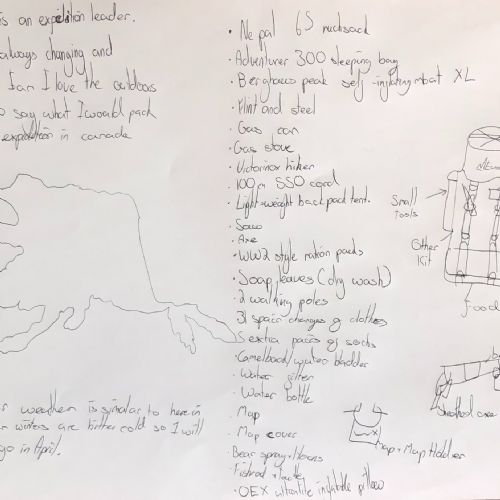 is an expedition leader.
always changing and
I am I love the outdoors
say what I would pack
expedition in canada
weather is similar to here in
winters are bitter cold so I will
go in April.
• Nepal 65 rucksack
• Adventurer 300 sleeping bag
• Berghaus peak self-inflating mat XL
• Flint and steel
• Gas can
• Gas stove
• Victorinox hiker
• 100m 550 cord
• Light-weight backpack tent.
• Saw
• Axe
• WW2 style ration packs
• Soap leaves (dry wash)
• 2 walking poles
3 spair changes of clothes
5 extra pairs of socks
• Camelback/water bladder
• Water filter
• Water bottle
• Map
• Map cover
• Bear spray + Horns
• Fishrod + tackle
• OEX ultralite inflatable pillow
Small tools
Other Kit
food
Sheathed axe
Map + Map Holder